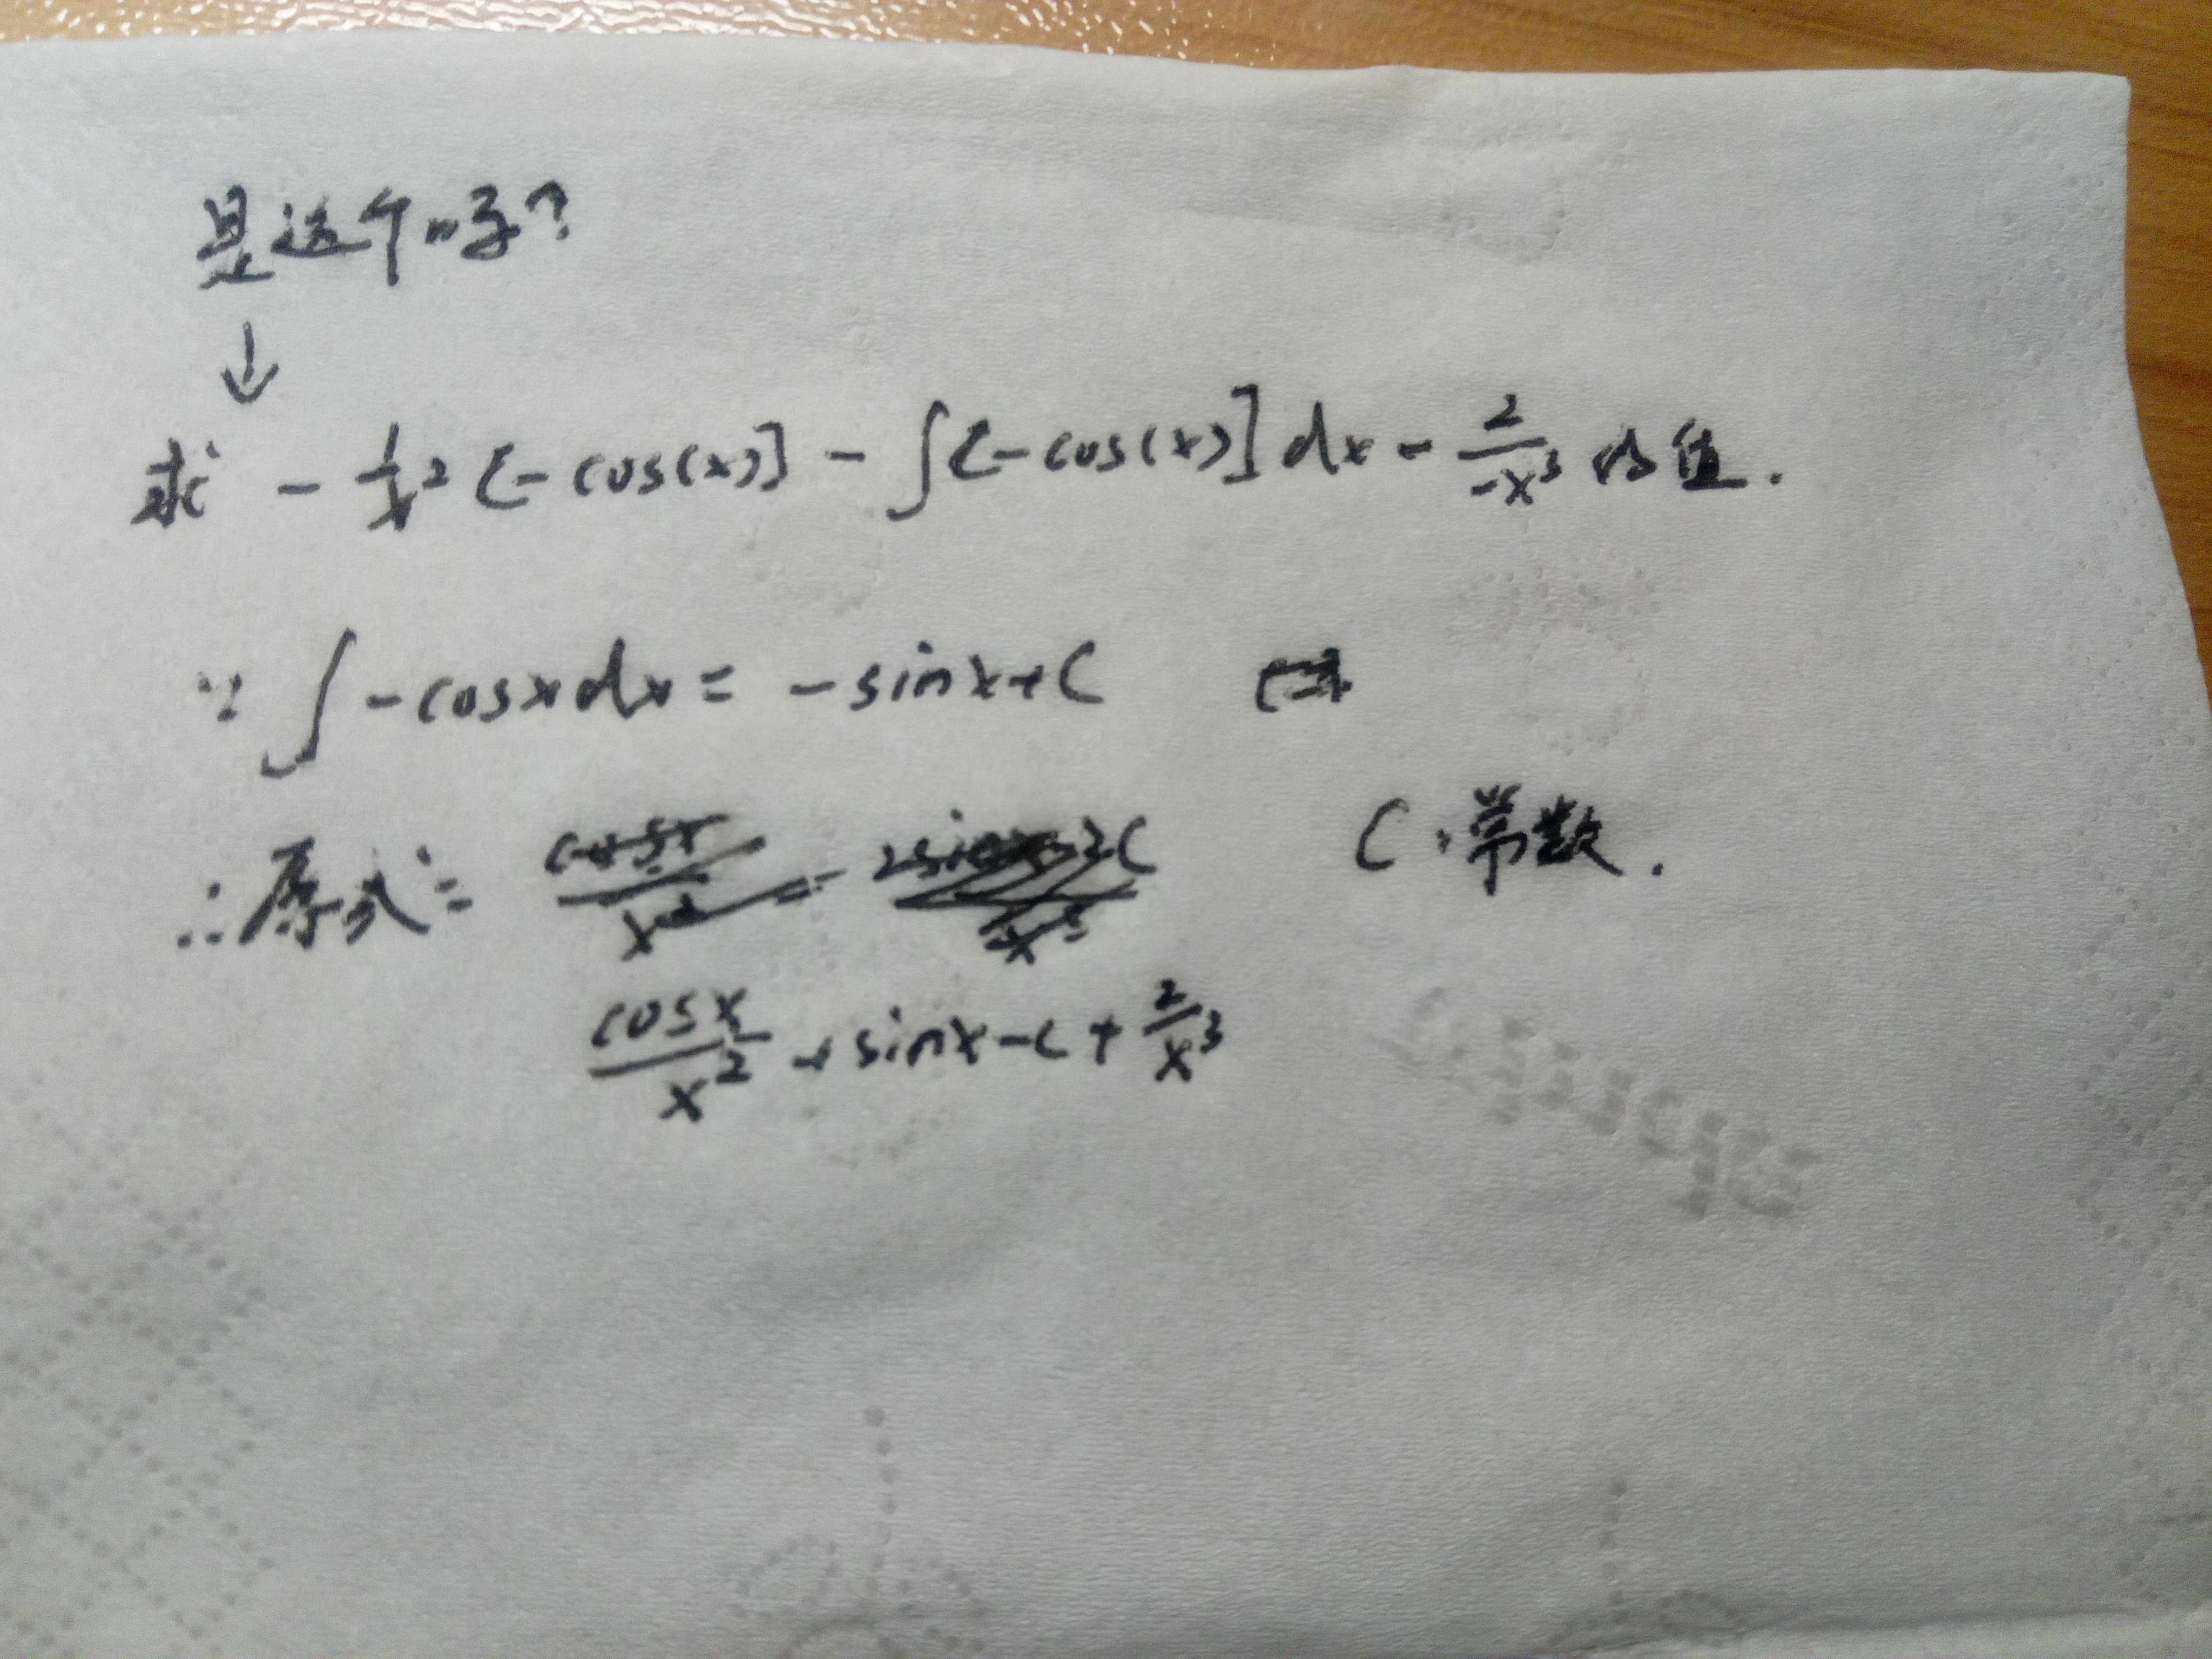 是这个吗?
↓
求 - 1/x² [-cos(x)] - ∫[-cos(x)] dx - 2/-x³ 的值.
∵ ∫ -cosxdx = -sinx+C
∴原式= C:常数.
cosx/x² + sinx - C + 2/x³